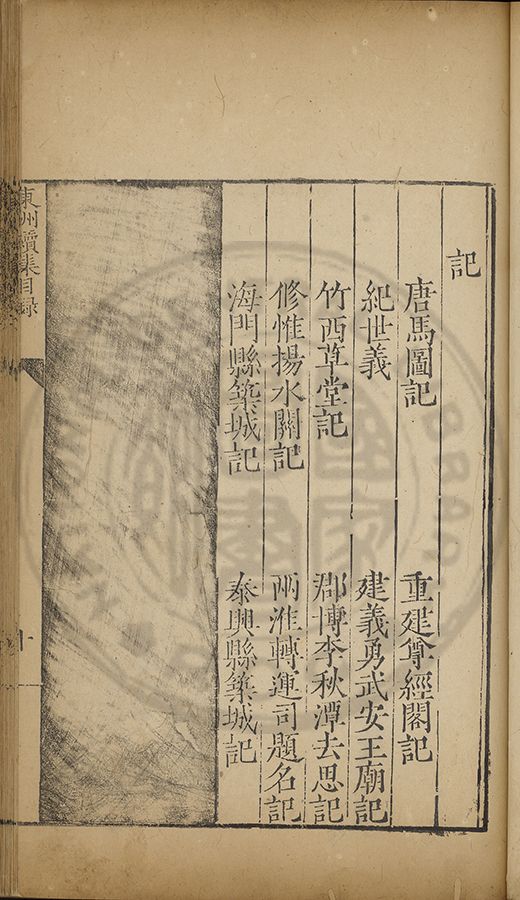 記
唐馬圖記 重建尊經閣記
紀世義 建義勇武安王廟記
竹西草堂記 郡博李秋潭去思記
修惟揚水關記 兩淮轉運司題名記
海門縣築城記 泰興縣築城記
東洲續集目錄